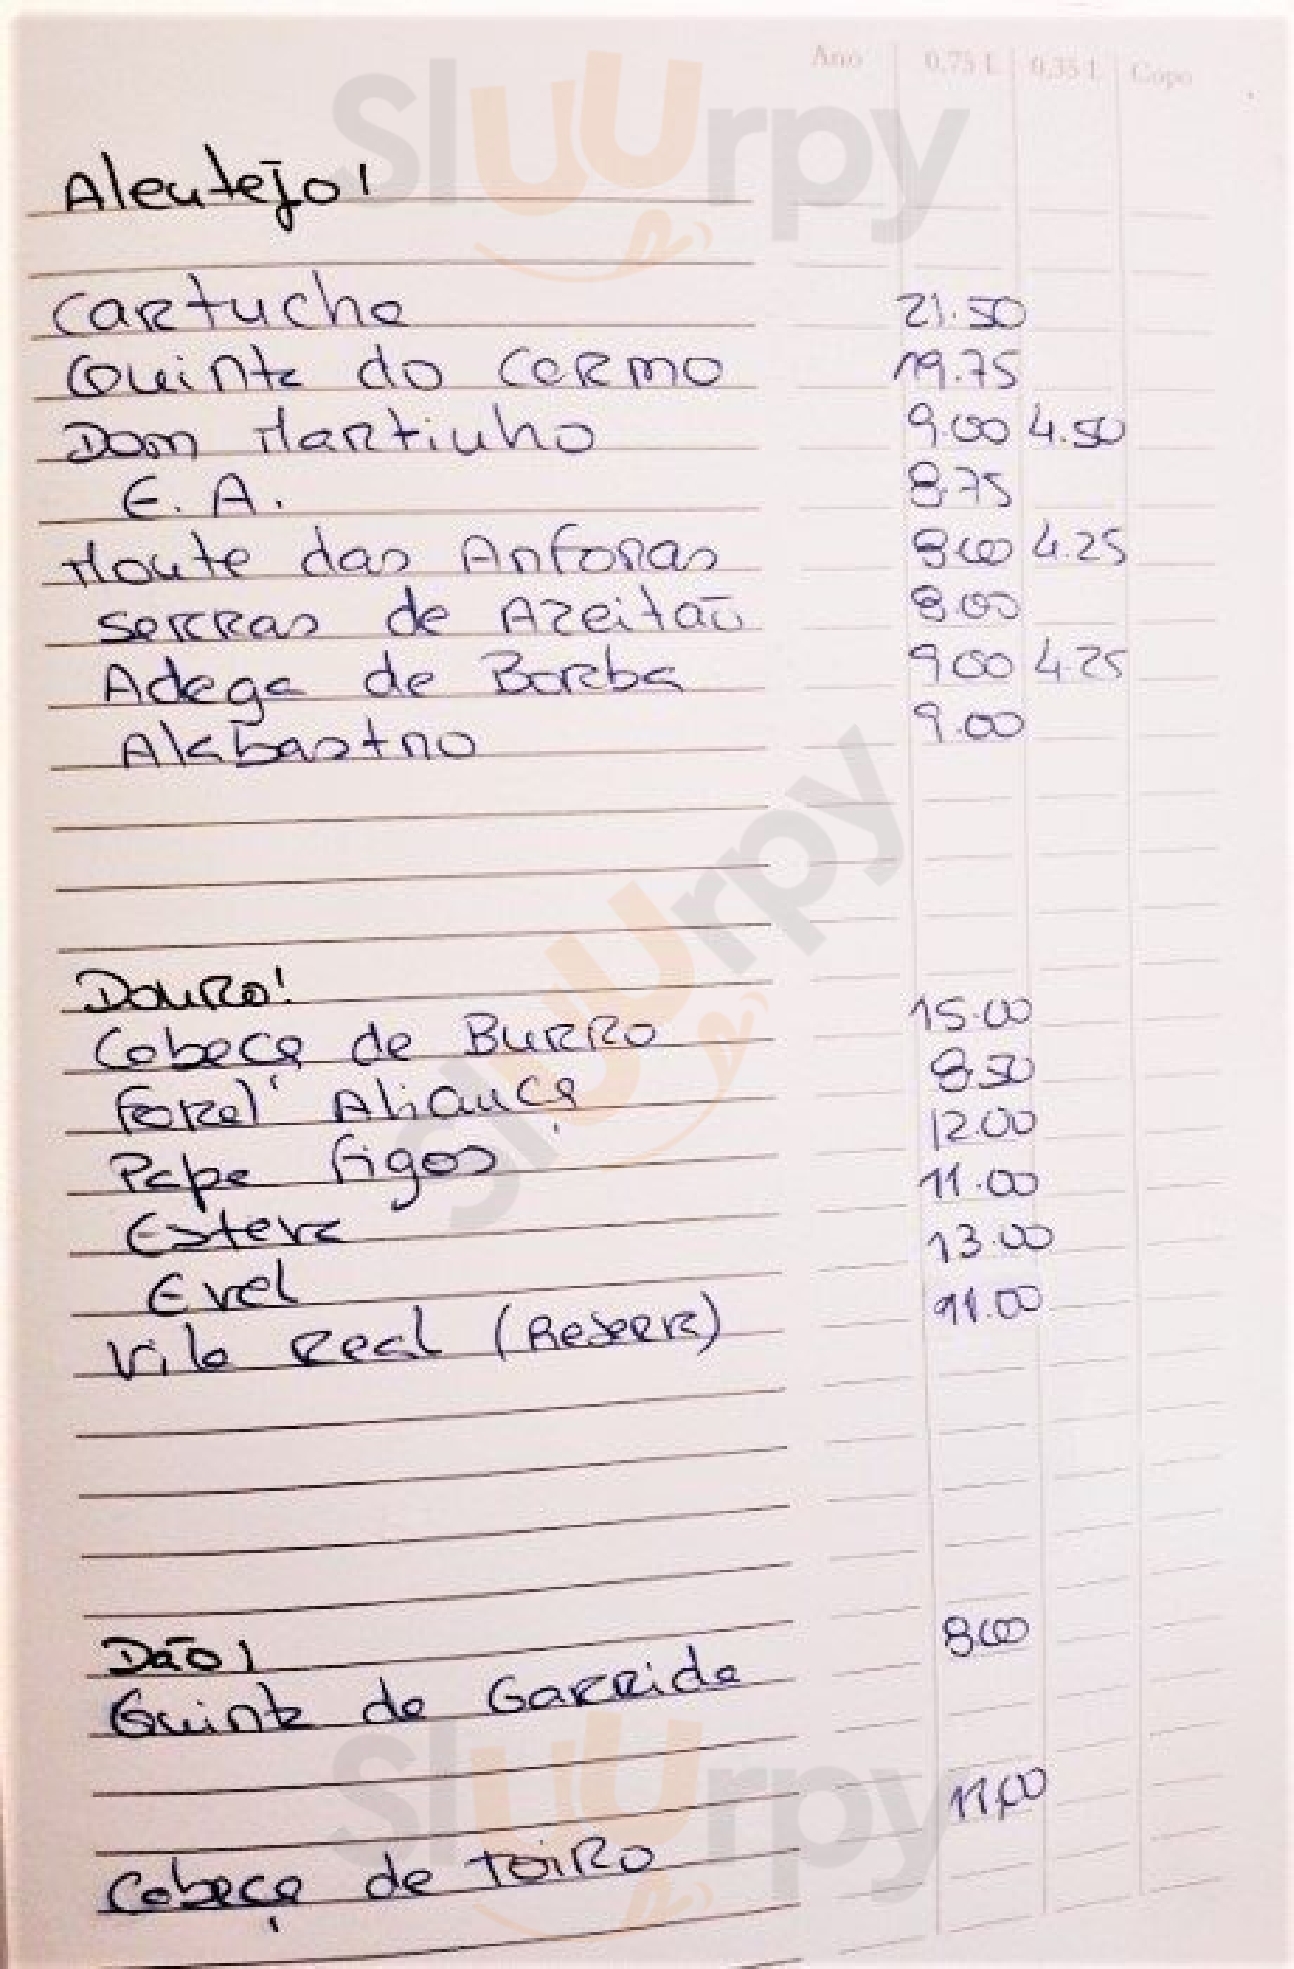 Ano 0,75 L 0,35 L Copo
Alentejo!
Cartucha 21.50
Quinta do Carmo 19.75
Dom Martinho 9.00 4.50
E.A. 8.75
Monte das Anforas 8.00 4.25
Serras de Azeitão 8.00
Adega de Borba 9.00 4.25
Alabastro 9.00
Douro!
Cabeça de Burro 15.00
Foral' Aliança 8.50
Papa Figos 12.00
Esteva 11.00
Evel 13.00
Vila Real (Reserva) 11.00
Dão!
Quinta da Garrida 8.00
Cabeça de Toiro 11,00
Sluurpy
Sluurpy
Sluurpy